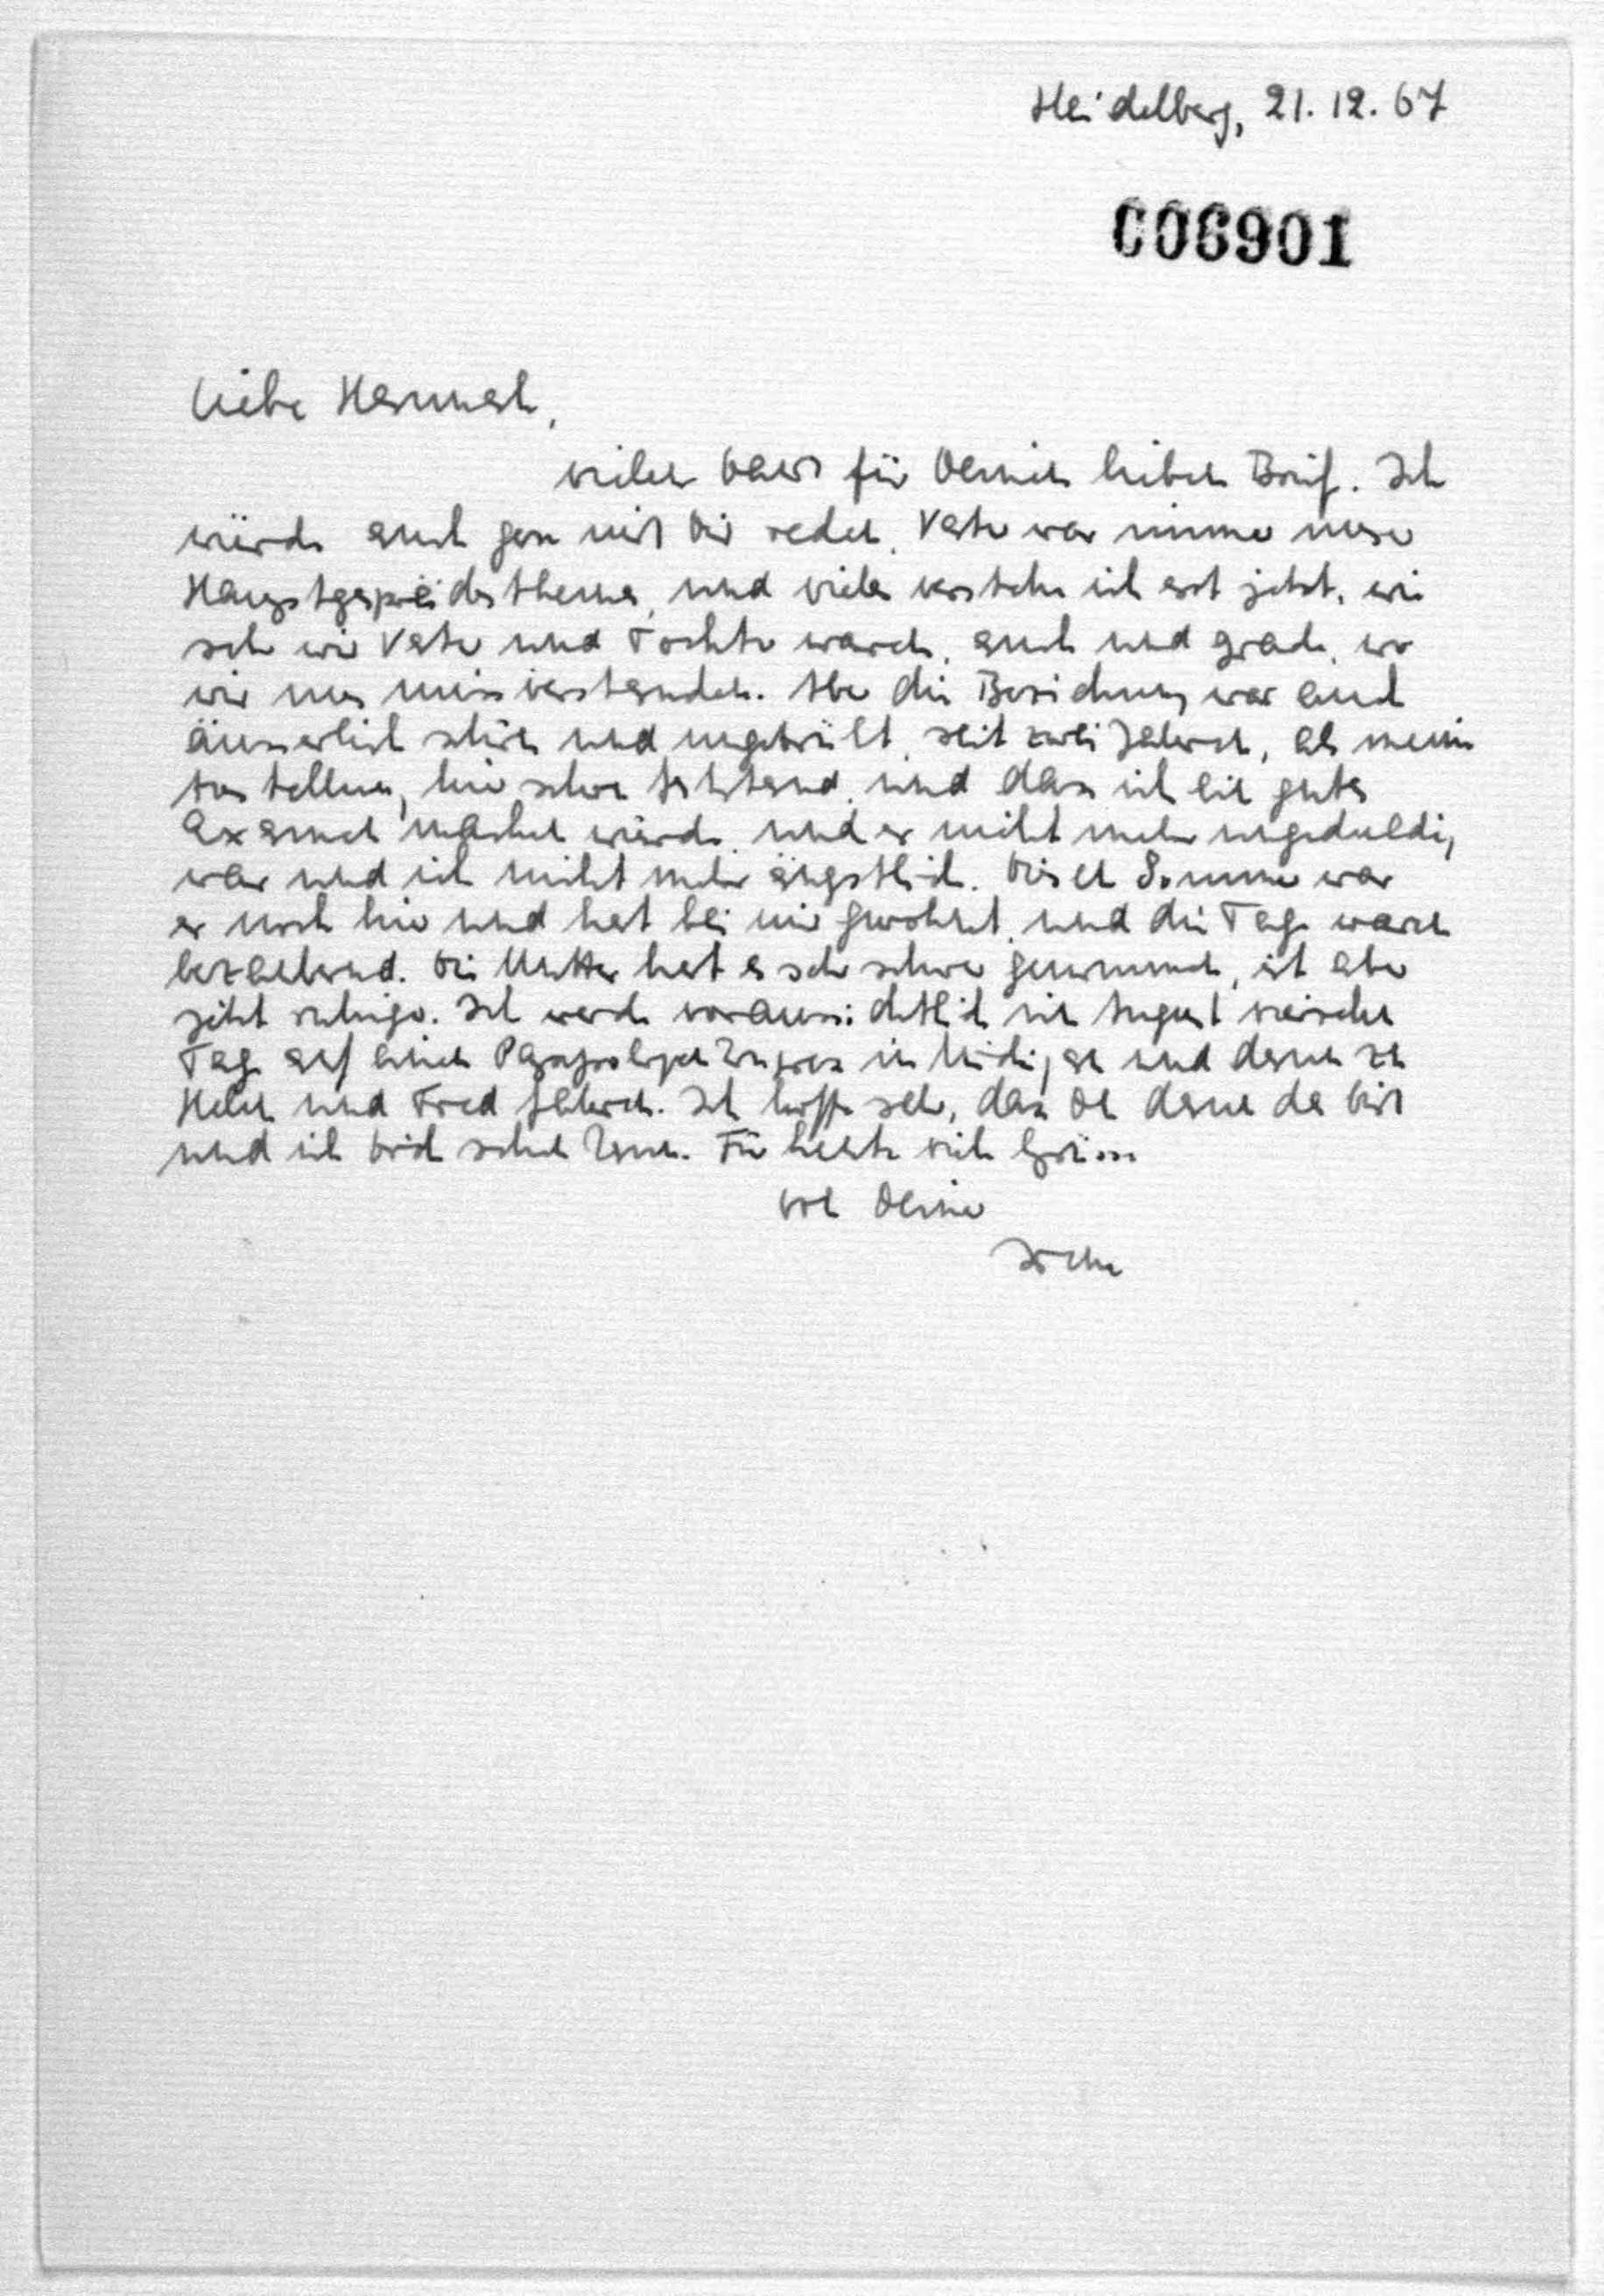 Heidelberg, 21.12.67
006901
Liebe Hannah,
vielen Dank für Deinen lieben Brief. Ich
würde auch gern mit Dir reden. Vater war immer unser
Hauptgesprächsthema, und vieles verstehe ich erst jetzt, wie
sehr wir Vater und Tochter waren, auch und grade, wo
wir uns missverstanden. Aber die Beziehung war auch
äusserlich schön und ungetrübt, seit zwei Jahren, als meine
Anstellung hier schon feststand, und dass ich ein gutes
Examen machen würde, und er nicht mehr ungeduldig
war und ich nicht mehr ängstlich. Diesen Sommer war
er noch hier und hat bei mir gewohnt, und die Tage waren
bezaubernd. Die Mutter hat es sehr schwer genommen, ist aber
jetzt ruhiger. Ich werde voraussichtlich im August vierzehn
Tage auf einen Papyrologen Kongress in Michigan und dann zu
Helen und Fred fahren. Ich hoffe sehr, dass Du dann da bist
und ich Dich sehen kann. Für heute viele Grüsse
von Deiner